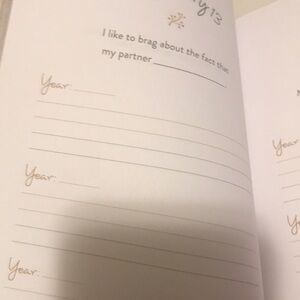 y 13
I like to brag about the fact that
my partner
Year:
Year:
Year:
Year:
Year: